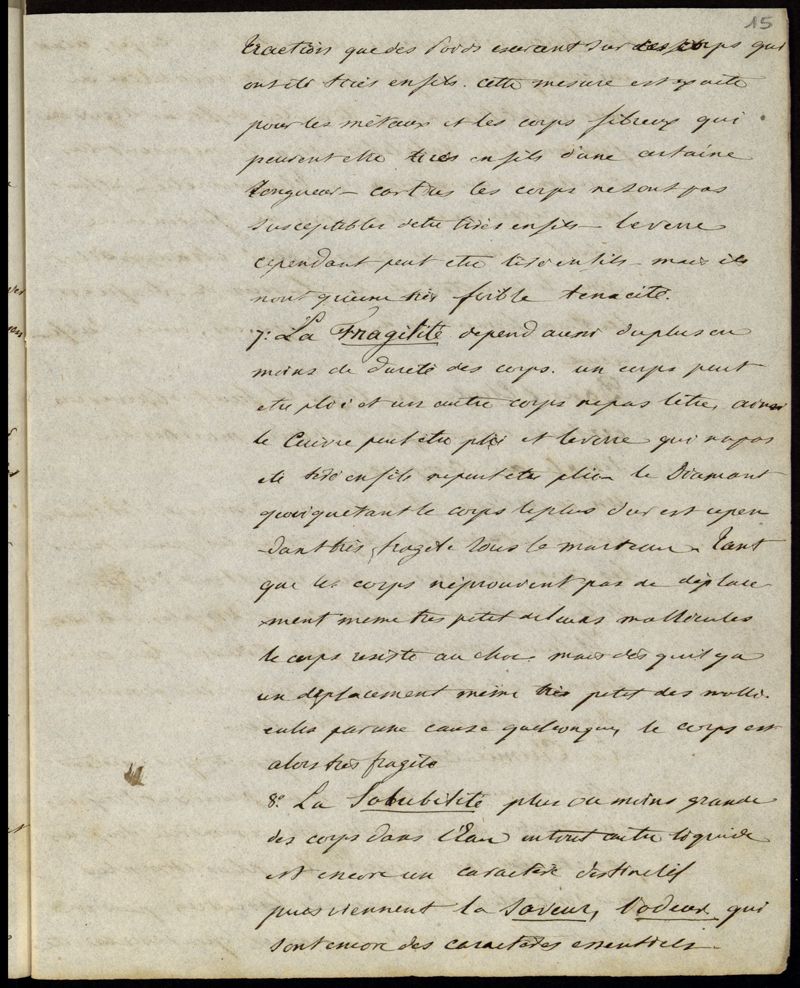 15
traction que des Poids exercent sur des corps qui
ont été tirés en fils. cette mesure est exacte
pour les métaux et les corps fibreux qui
peuvent etre tirés en fils d'une certaine
longueur - car tous les corps ne sont pas
susceptables d'etre tirés en fils - le verre
cependant peut etre tiré en fils - mais ils
n'ont qu'une très foible tenacité.
7: La Fragilité depend aussi du plus ou
moins de dureté des corps. un corps peut
etre ploié et un autre corps ne pas l'etre, ainsi
le Cuivre peut etre ploié et le verre qui n'a pas
eté tiré en fils ne peut etre plié - le Diamant
quoiqu'etant le corps le plus dur est cepen
-dant très fragile sous le marteau. Tant
que les corps n'eprouvent pas de deplace
-ment meme tres petit de leurs mollécules
le corps resiste au choc - mais dès qu'il y a
un deplacement même très petit des mollé-
cules par une cause quelconque, le corps est
alors très fragile
8º. La Solubilité plus ou moins grande
des corps dans l'Eau ou tout autre liquide
est encore un caractère distinctif
puis viennent la Saveur, l'odeur qui
sont encore des caractères essentiels -